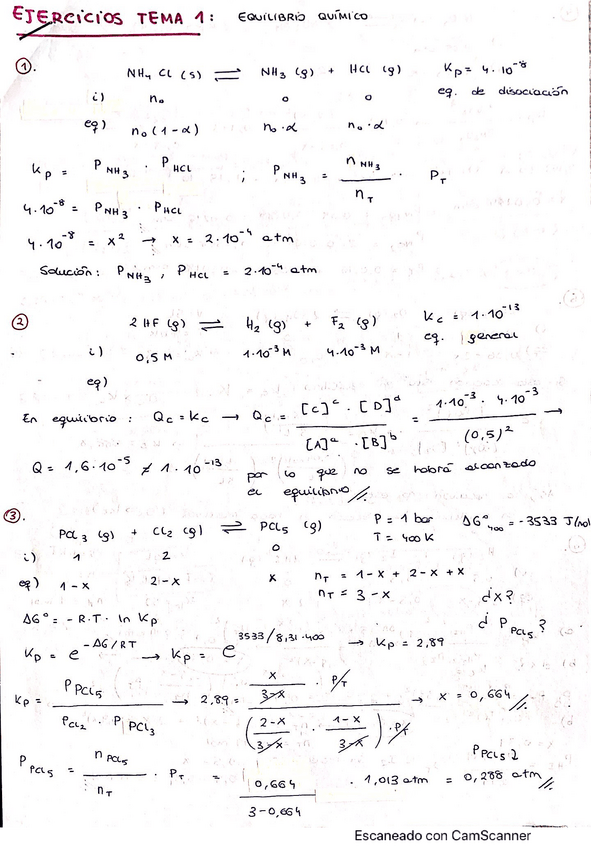 EJERCICIOS TEMA 1: EQUILIBRIO QUÍMICO
①. NH₄ Cl (s) ⇌ NH₃ (g) + HCl (g) Kp = 4·10⁻⁸
i) n₀ 0 0 eq. de disociación
eq) n₀(1-α) n₀·α n₀·α
Kp = P NH₃ · P HCL ; P NH₃ = n NH₃ / n T · P T
4·10⁻⁸ = P NH₃ · P HCL
4·10⁻⁸ = x² → x = 2·10⁻⁴ atm
Solución: P NH₃ , P HCL = 2·10⁻⁴ atm
② 2 HF (g) ⇌ H₂ (g) + F₂ (g) Kc = 1·10⁻¹³
i) 0,5 M 1·10⁻³ M 4·10⁻³ M eq. general
eq)
En equilibrio: Qc = Kc → Qc = [C]ᶜ · [D]ᵈ / [A]ᵃ · [B]ᵇ = 1·10⁻³ · 4·10⁻³ / (0,5)² →
Q = 1,6·10⁻⁵ ≠ 1·10⁻¹³ por lo que no se habrá alcanzado
el equilibrio
③. PCl₃ (g) + Cl₂ (g) ⇌ PCl₅ (g) P = 1 bar ΔG°₄₀₀ = -3533 J/mol
i) 1 2 0 T = 400 K
eq) 1-x 2-x x n T = 1-x + 2-x + x
n T = 3-x ¿x?
ΔG° = -R·T· ln Kp ¿ P PCL₅?
Kp = e^-ΔG/RT → Kp = e^3533/8,31·400 → Kp = 2,89
Kp = P PCl₅ / P CL₂ · P PCl₃ → 2,89 = x/3-x · P/T / (2-x/3-x · 1-x/3-x) · P/ → x = 0,664
P PCL₅ = n PCL₅ / n T · P T = 0,664 / 3-0,664 · 1,013 atm = 0,288 atm
P PCL5
Escaneado con CamScanner